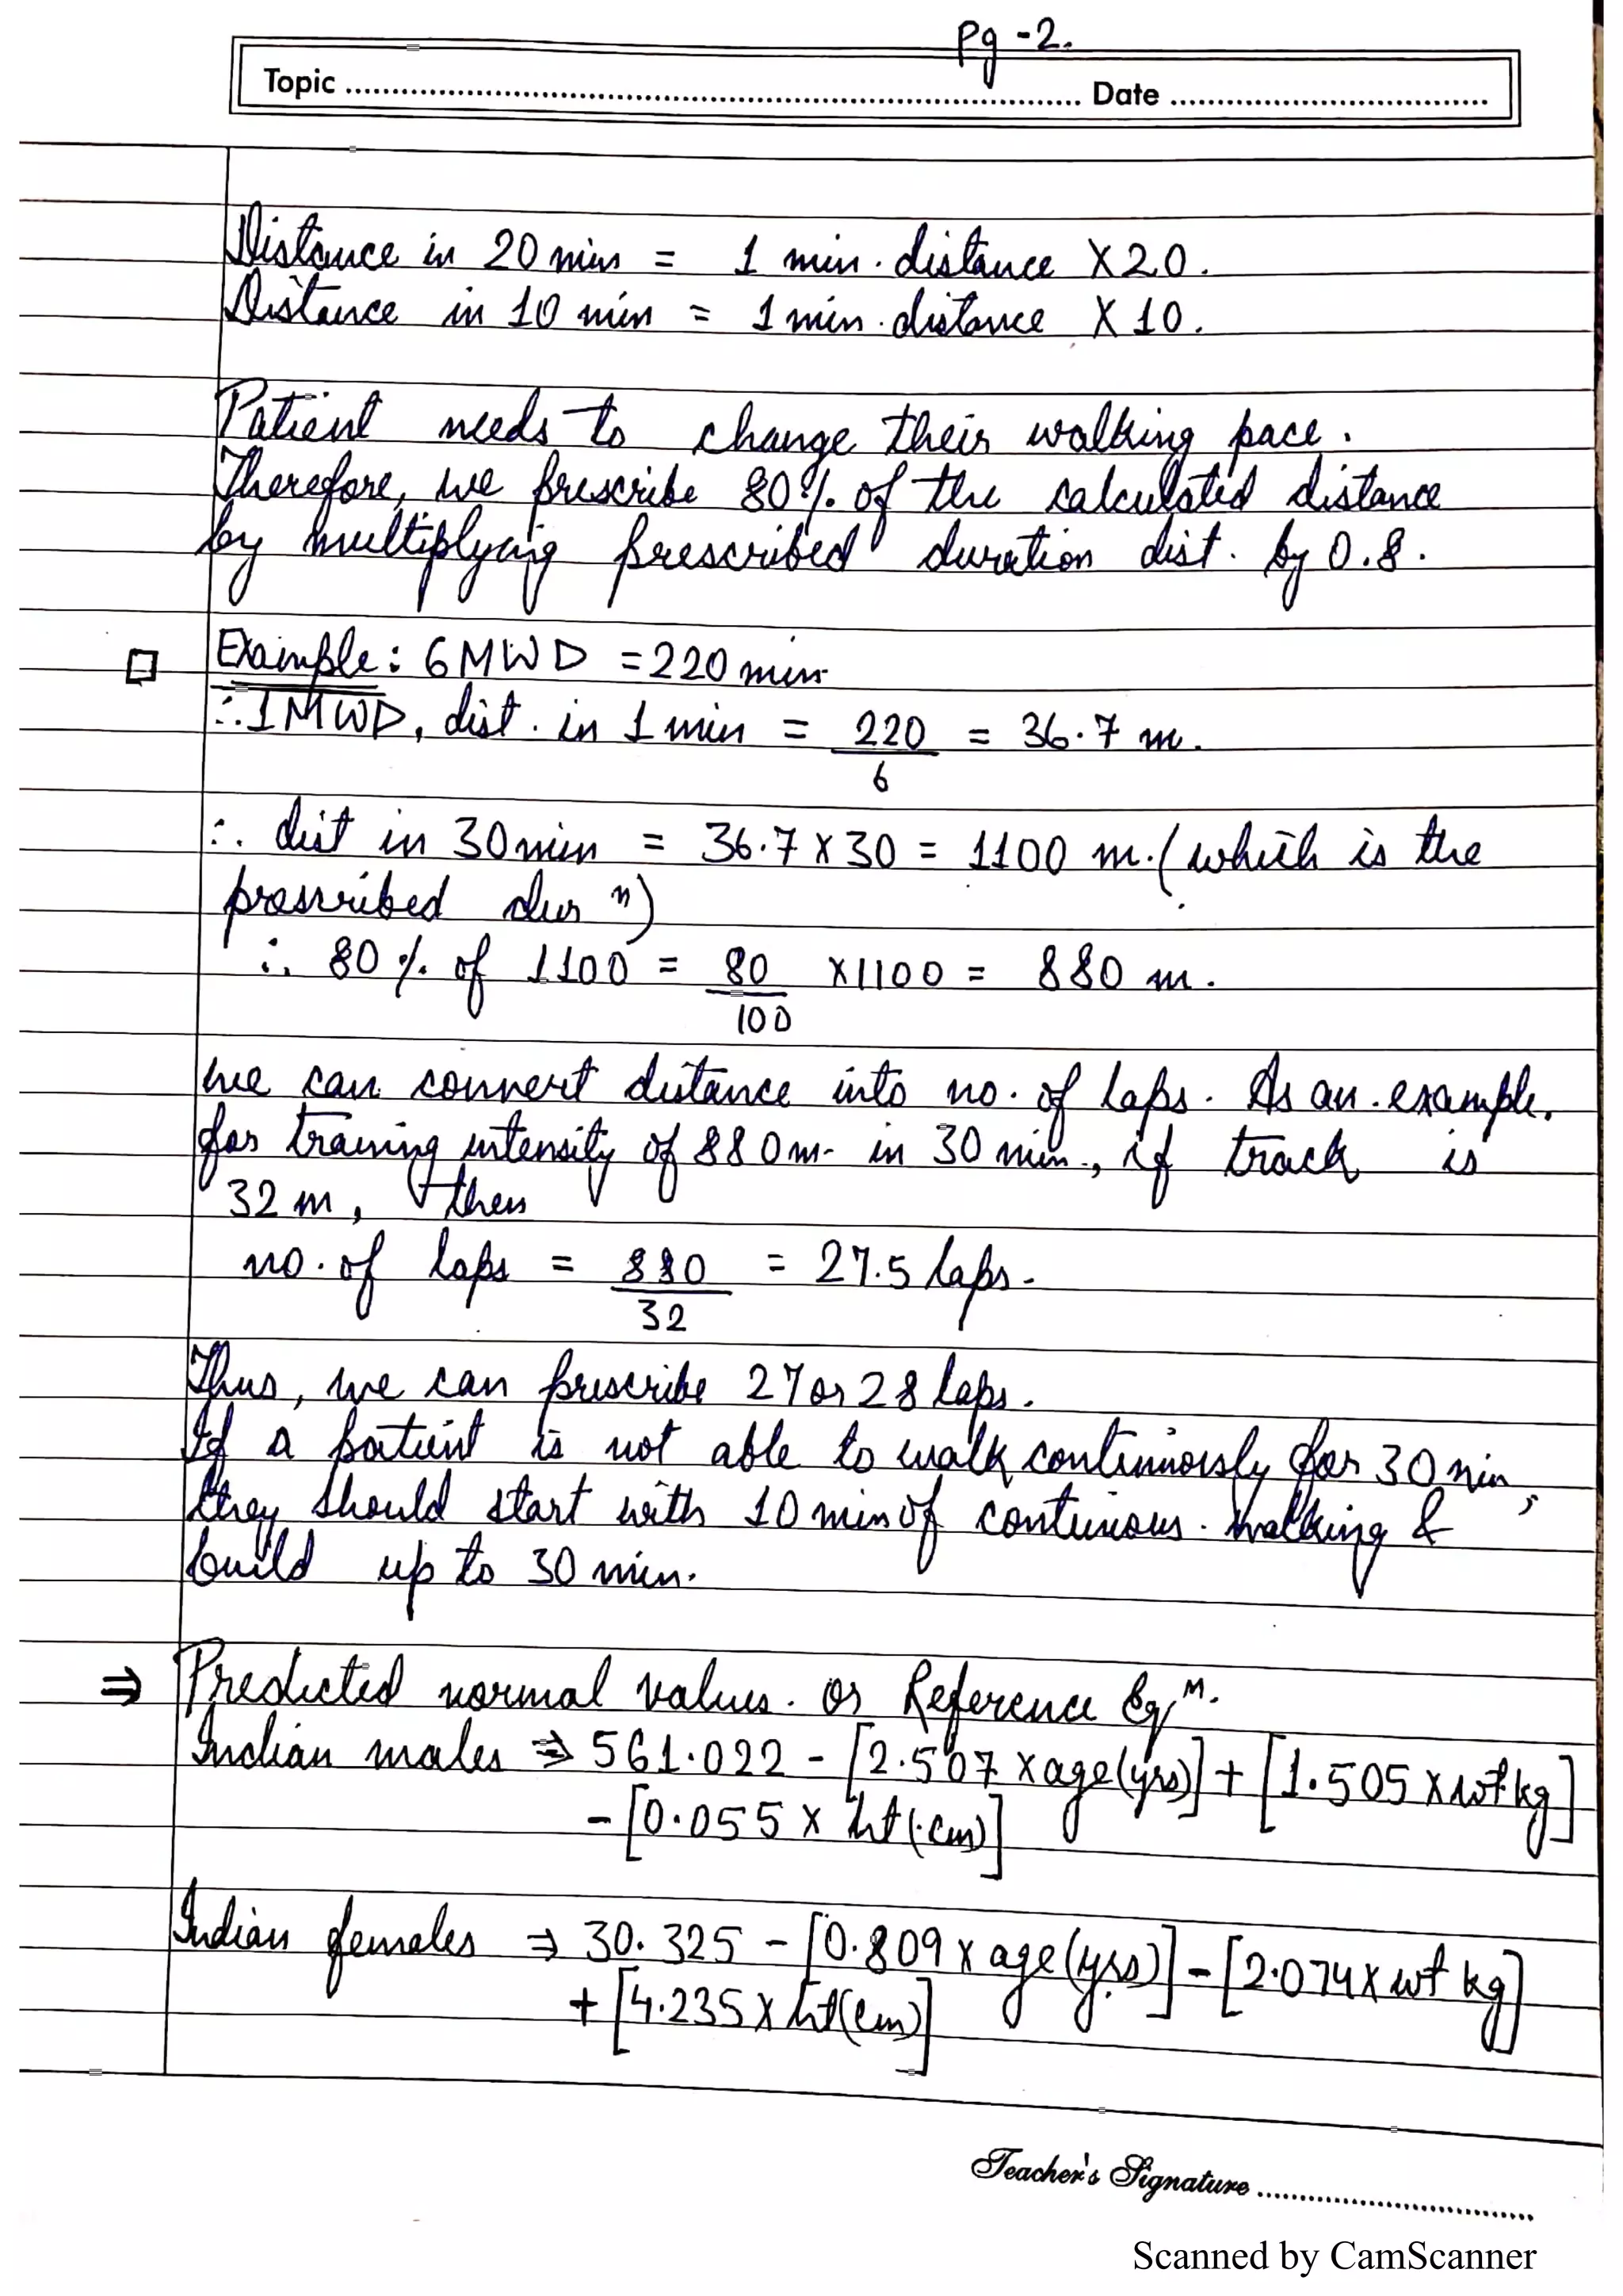 pg -2.
Topic .......... Date ..........
Distance in 20 min = 1 min. distance X20.
Distance in 10 min = 1 min. distance X 10.
Patient needs to change their walking pace.
Therefore, we prescribe 80% of the calculated distance
by multiplying prescribed duration dist. by 0.8.
Example: 6MWD = 220 min
∴ 1MWD, dist. in 1 min = 220/6 = 36.7 m.
∴ dist in 30 min = 36.7 x 30 = 1100 m. (which is the
prescribed durⁿ)
∴ 80% of 1100 = 80/100 x1100 = 880 m.
we can convert distance into no. of laps. As an example,
for training intensity of 880m in 30 min., if track is
32 m, then
no. of laps = 880/32 = 27.5 laps.
Thus, we can prescribe 27 or 28 laps.
If a patient is not able to walk continuously for 30 min,
they should start with 10 min of continuous walking &
build up to 30 min.
⇒ Predicted normal values. or Reference Eqⁿ.
Indian males ⇒ 561.022 - [2.507 x age(yrs)] + [1.505 x wt kg]
- [0.055 x ht(cm)]
Indian females ⇒ 30.325 - [0.809 x age(yrs)] - [2.074 x wt kg]
+ [4.235 x ht(cm)]
Teacher's Signature ..........
Scanned by CamScanner